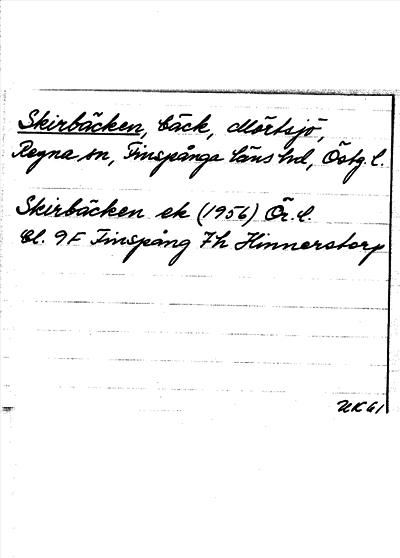 Skirbäcken, bäck, Mörtsjö,
Regna sn, Finspånga läns hd, Östg. l.
Skirbäcken ek (1956) Ör. l.
bl. 9F Finspång 7h Hinnerstorp
UK 61